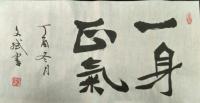 一身
正氣
丁酉冬月
文斌書